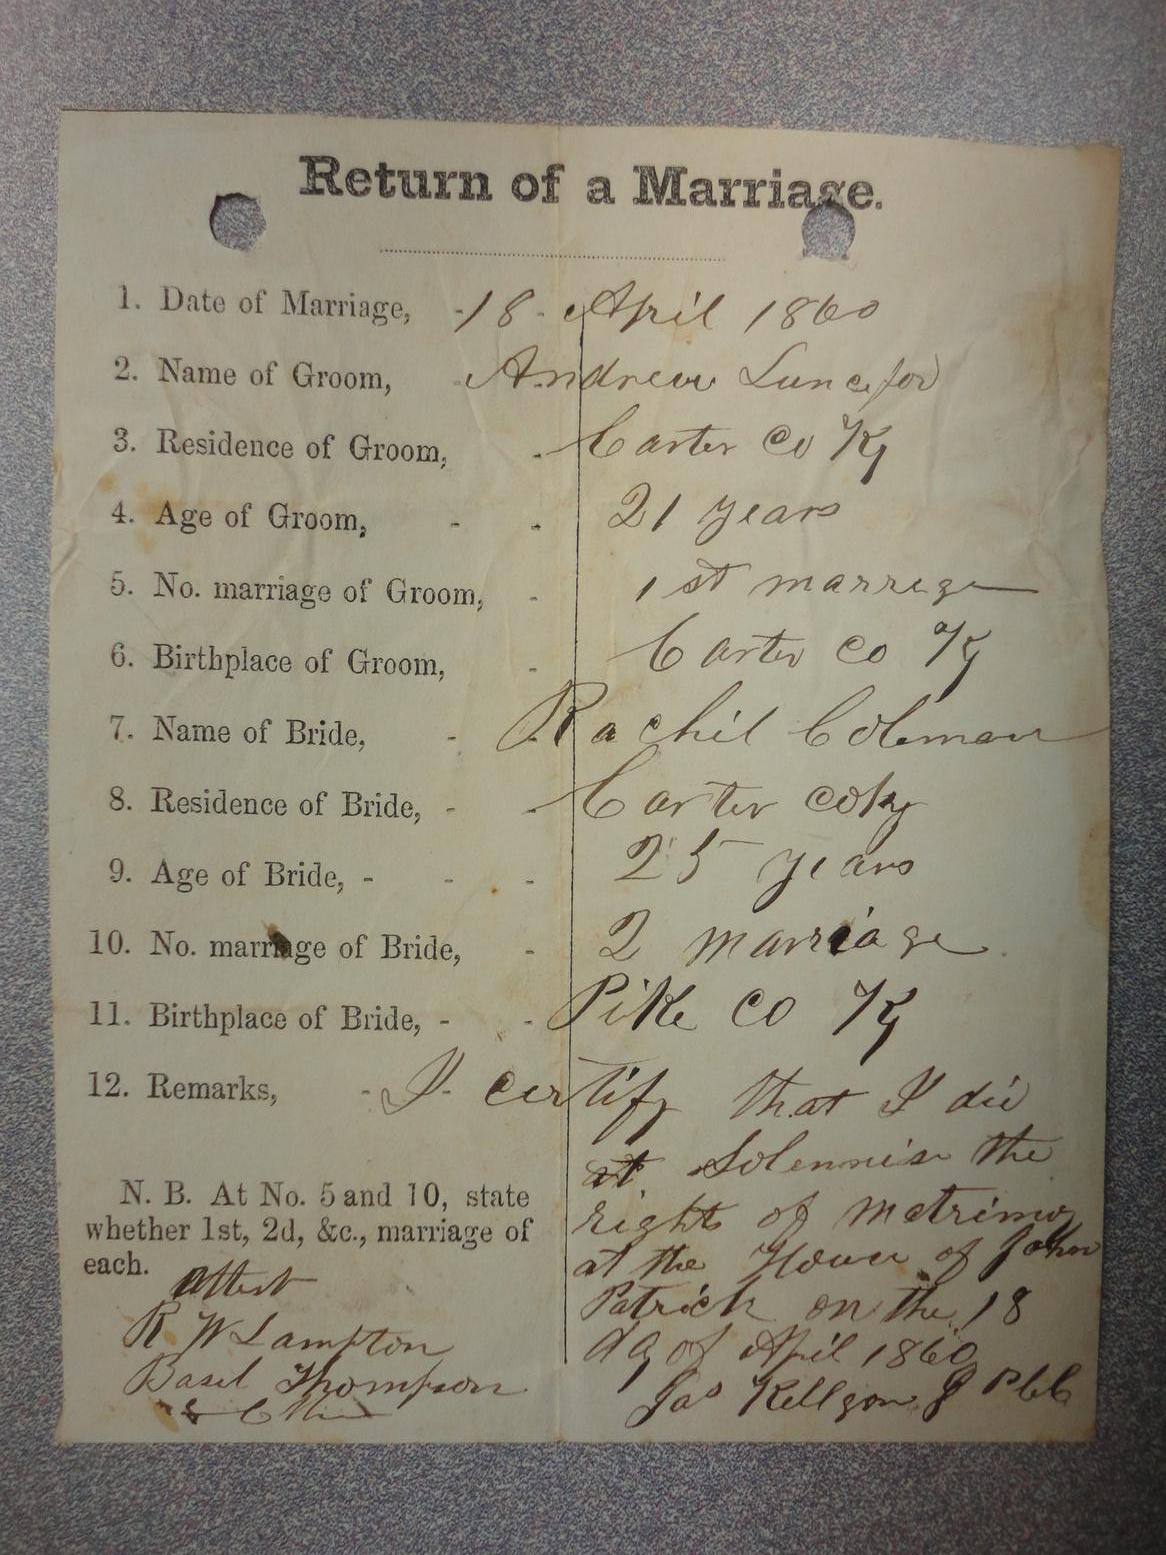 Return of a Marriage.
1. Date of Marriage, - 18 - April 1860
2. Name of Groom, Andrew Luncefor
3. Residence of Groom, - Carter Co Ky
4. Age of Groom, - - 21 years
5. No. marriage of Groom, - 1st marrege
6. Birthplace of Groom, - Carter Co Ky
7. Name of Bride, - - Rachil Coleman
8. Residence of Bride, - - Carter co ky
9. Age of Bride, - - - 25 years
10. No. marriage of Bride, - 2 marriage
11. Birthplace of Bride, - - Pike Co Ky
12. Remarks, - I certify that I did
at Solemnise the
rights of matrimony
at the House of John
Patrick on the 18
day of April 1860
Jas Kellgon
N. B. At No. 5 and 10, state
whether 1st, 2d, &c., marriage of
each.
attest
R W Lampton
Basel Thompson
&